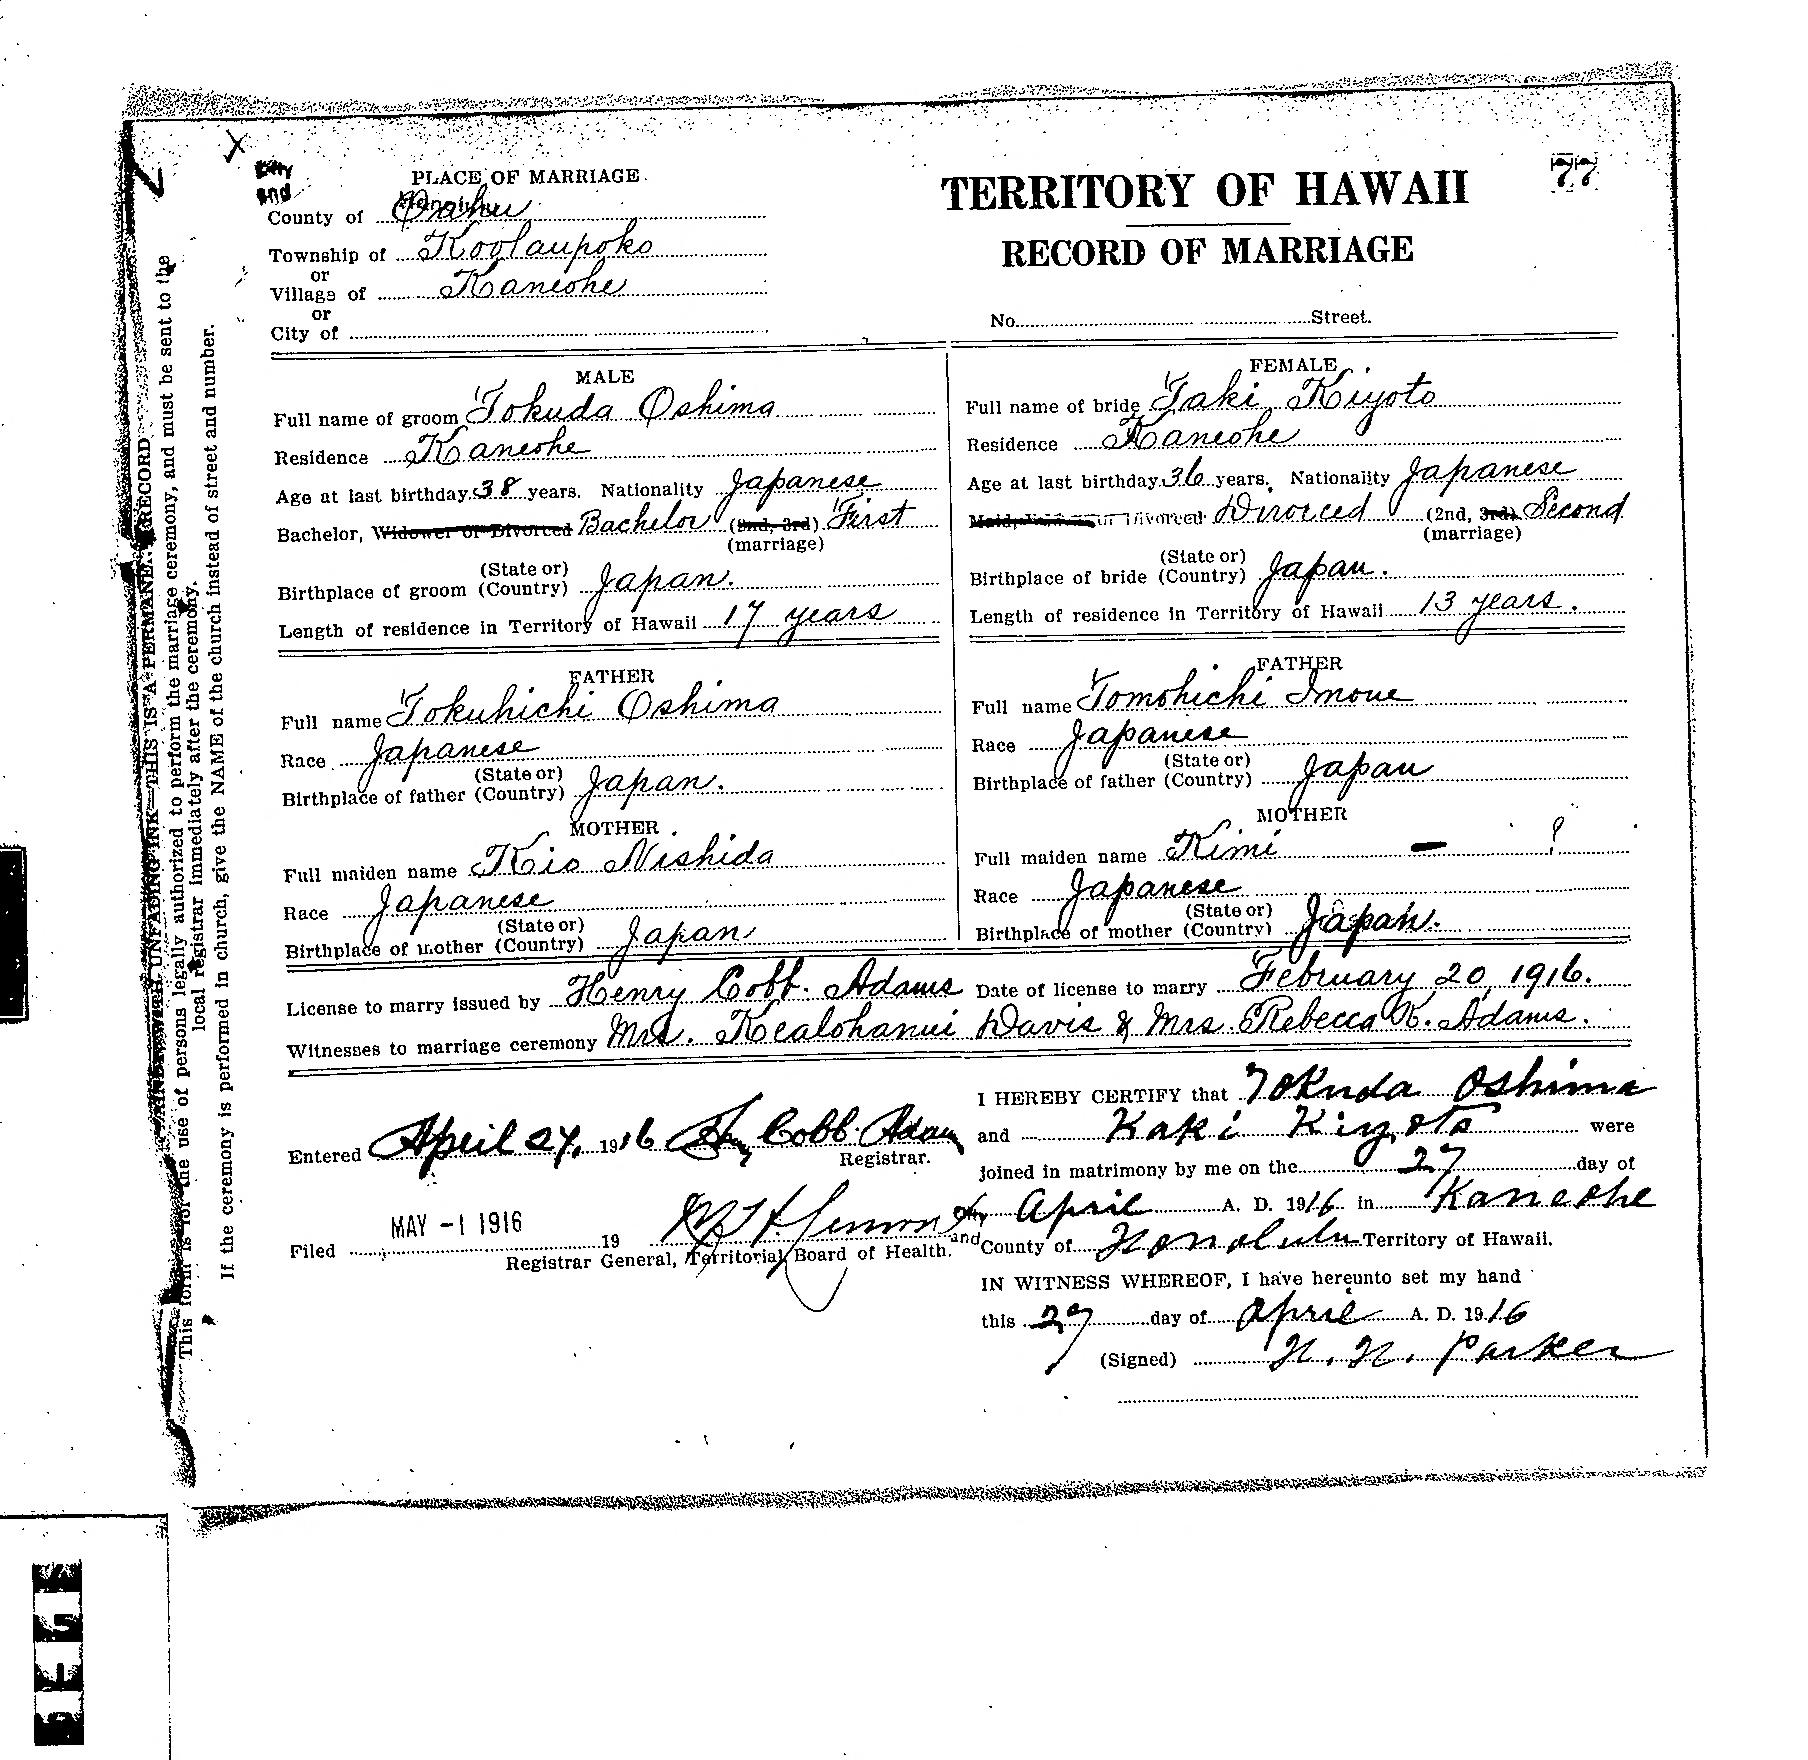 77
PLACE OF MARRIAGE
City and
County of Oahu
Township of Koolaupoko
or
Village of Kaneohe
or
City of
TERRITORY OF HAWAII
RECORD OF MARRIAGE
No. Street.
MALE
Full name of groom Tokuda Oshima
Residence Kaneohe
Age at last birthday 38 years. Nationality Japanese
Bachelor, Widower or Divorced Bachelor (2nd, 3rd) First
(marriage)
(State or)
Birthplace of groom (Country) Japan.
Length of residence in Territory of Hawaii 17 years
FEMALE
Full name of bride Taki Kiyoto
Residence Kaneohe
Age at last birthday 36 years. Nationality Japanese
or Divorced Divorced (2nd, 3rd) Second
(marriage)
(State or)
Birthplace of bride (Country) Japan.
Length of residence in Territory of Hawaii 13 years.
FATHER
Full name Tokuhichi Oshima
Race Japanese
(State or)
Birthplace of father (Country) Japan.
MOTHER
Full maiden name Kio Nishida
Race Japanese
(State or)
Birthplace of mother (Country) Japan
FATHER
Full name Tomohichi Inoue
Race Japanese
(State or)
Birthplace of father (Country) Japan
MOTHER
Full maiden name Kimi – ?
Race Japanese
(State or)
Birthplace of mother (Country) Japan.
License to marry issued by Henry Cobb. Adams Date of license to marry February 20, 1916.
Witnesses to marriage ceremony Mrs. Kealohanui Davis & Mrs. Rebecca K. Adams.
Entered April 27, 1916 Cobb. Adams
Registrar.
MAY -1 1916
Filed 19
Registrar General, Territorial Board of Health.
I HEREBY CERTIFY that Tokuda Oshima
and Kaki Kiyoto were
joined in matrimony by me on the 27 day of
April A. D. 1916 in Kaneohe
City and County of Honolulu Territory of Hawaii.
IN WITNESS WHEREOF, I have hereunto set my hand
this 27 day of April A. D. 1916
(Signed) H. H. Parker
WRITE WITH UNFADING INK—THIS IS A PERMANENT RECORD
This form is for the use of persons legally authorized to perform the marriage ceremony, and must be sent to the
local registrar immediately after the ceremony.
If the ceremony is performed in church, give the NAME of the church instead of street and number.